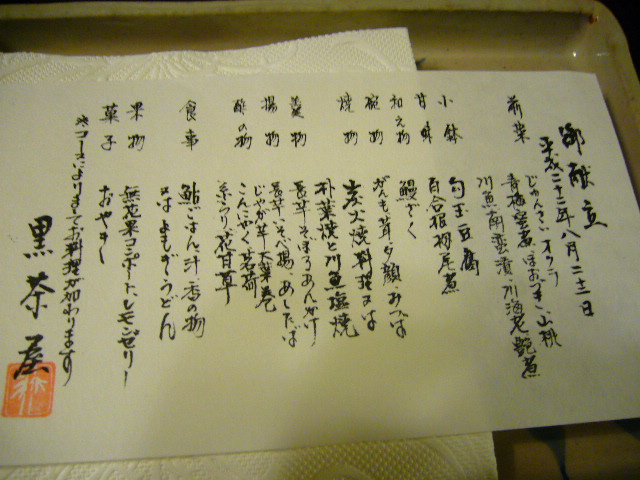 御献立
平成二十二年八月二十三日
前菜 じゅんさい オクラ
青梅蜜煮 ほおづき 山桃
川魚南蛮漬 川海老艶煮
小鉢 勾玉豆腐
甘味 百合根初尾煮
和え物 鰻ざく
椀物 がんも 茸 夕顔 みつば
焼物 炭火焼料理又は
朴葉焼と川魚塩焼
煮物 長芋そぼろあんかけ
揚物 長芋、そば揚、あしたば
じゃが芋大葉巻
酢の物 こんにゃく 茗荷
糸うり 花甘草
食事 鮎ごはん、汁、香の物
又はよもぎうどん
果物 無花果コンポート、レモンゼリー
菓子 おやき
※コースによりましてお料理が加わります
黒茶屋